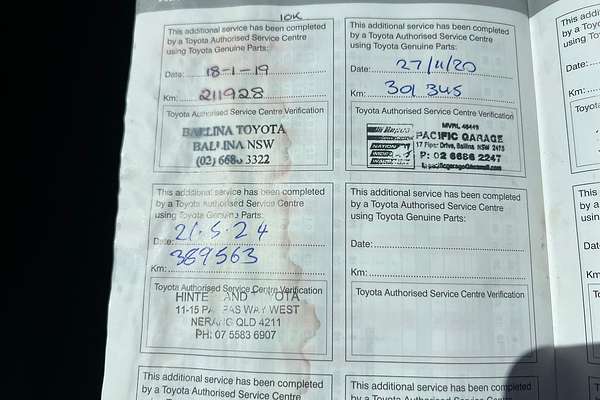 10K
This additional service has been completed
by a Toyota Authorised Service Centre
using Toyota Genuine Parts:
Date: 18-1-19
Km: 211928
Toyota Authorised Service Centre Verification
BALLINA TOYOTA
BALLINA NSW
(02) 668 3322
This additional service has been completed
by a Toyota Authorised Service Centre
using Toyota Genuine Parts:
Date: 27/11/20
Km: 301 345
Toyota Authorised Service Centre Verification
PACIFIC GARAGE
17 Piper Drive, Ballina NSW 2478
P: 02 6686 2247
This additional service has been completed
by a Toyota Authorised Service Centre
using Toyota Genuine Parts:
Date: 21.5.24
389563
Km:
Toyota Authorised Service Centre Verification
HINTE AND OTA
11-15 PA PAS WAY WEST
NERANG QLD 4211
PH: 07 5583 6907
This additional service has been completed
by a Toyota Authorised Service Centre
using Toyota Genuine Parts:
Date:
Km:
Toyota Authorised Service Centre Verification
This additional service has been completed
by a Toyota Authorised Service Centre
This additional service has been completed
by a Toyota Authorised Service Centre
This addi
by a Toyo
using To
Date:
Km:
Toyota
This ad
by a To
using
Date:
Km:
This
by a